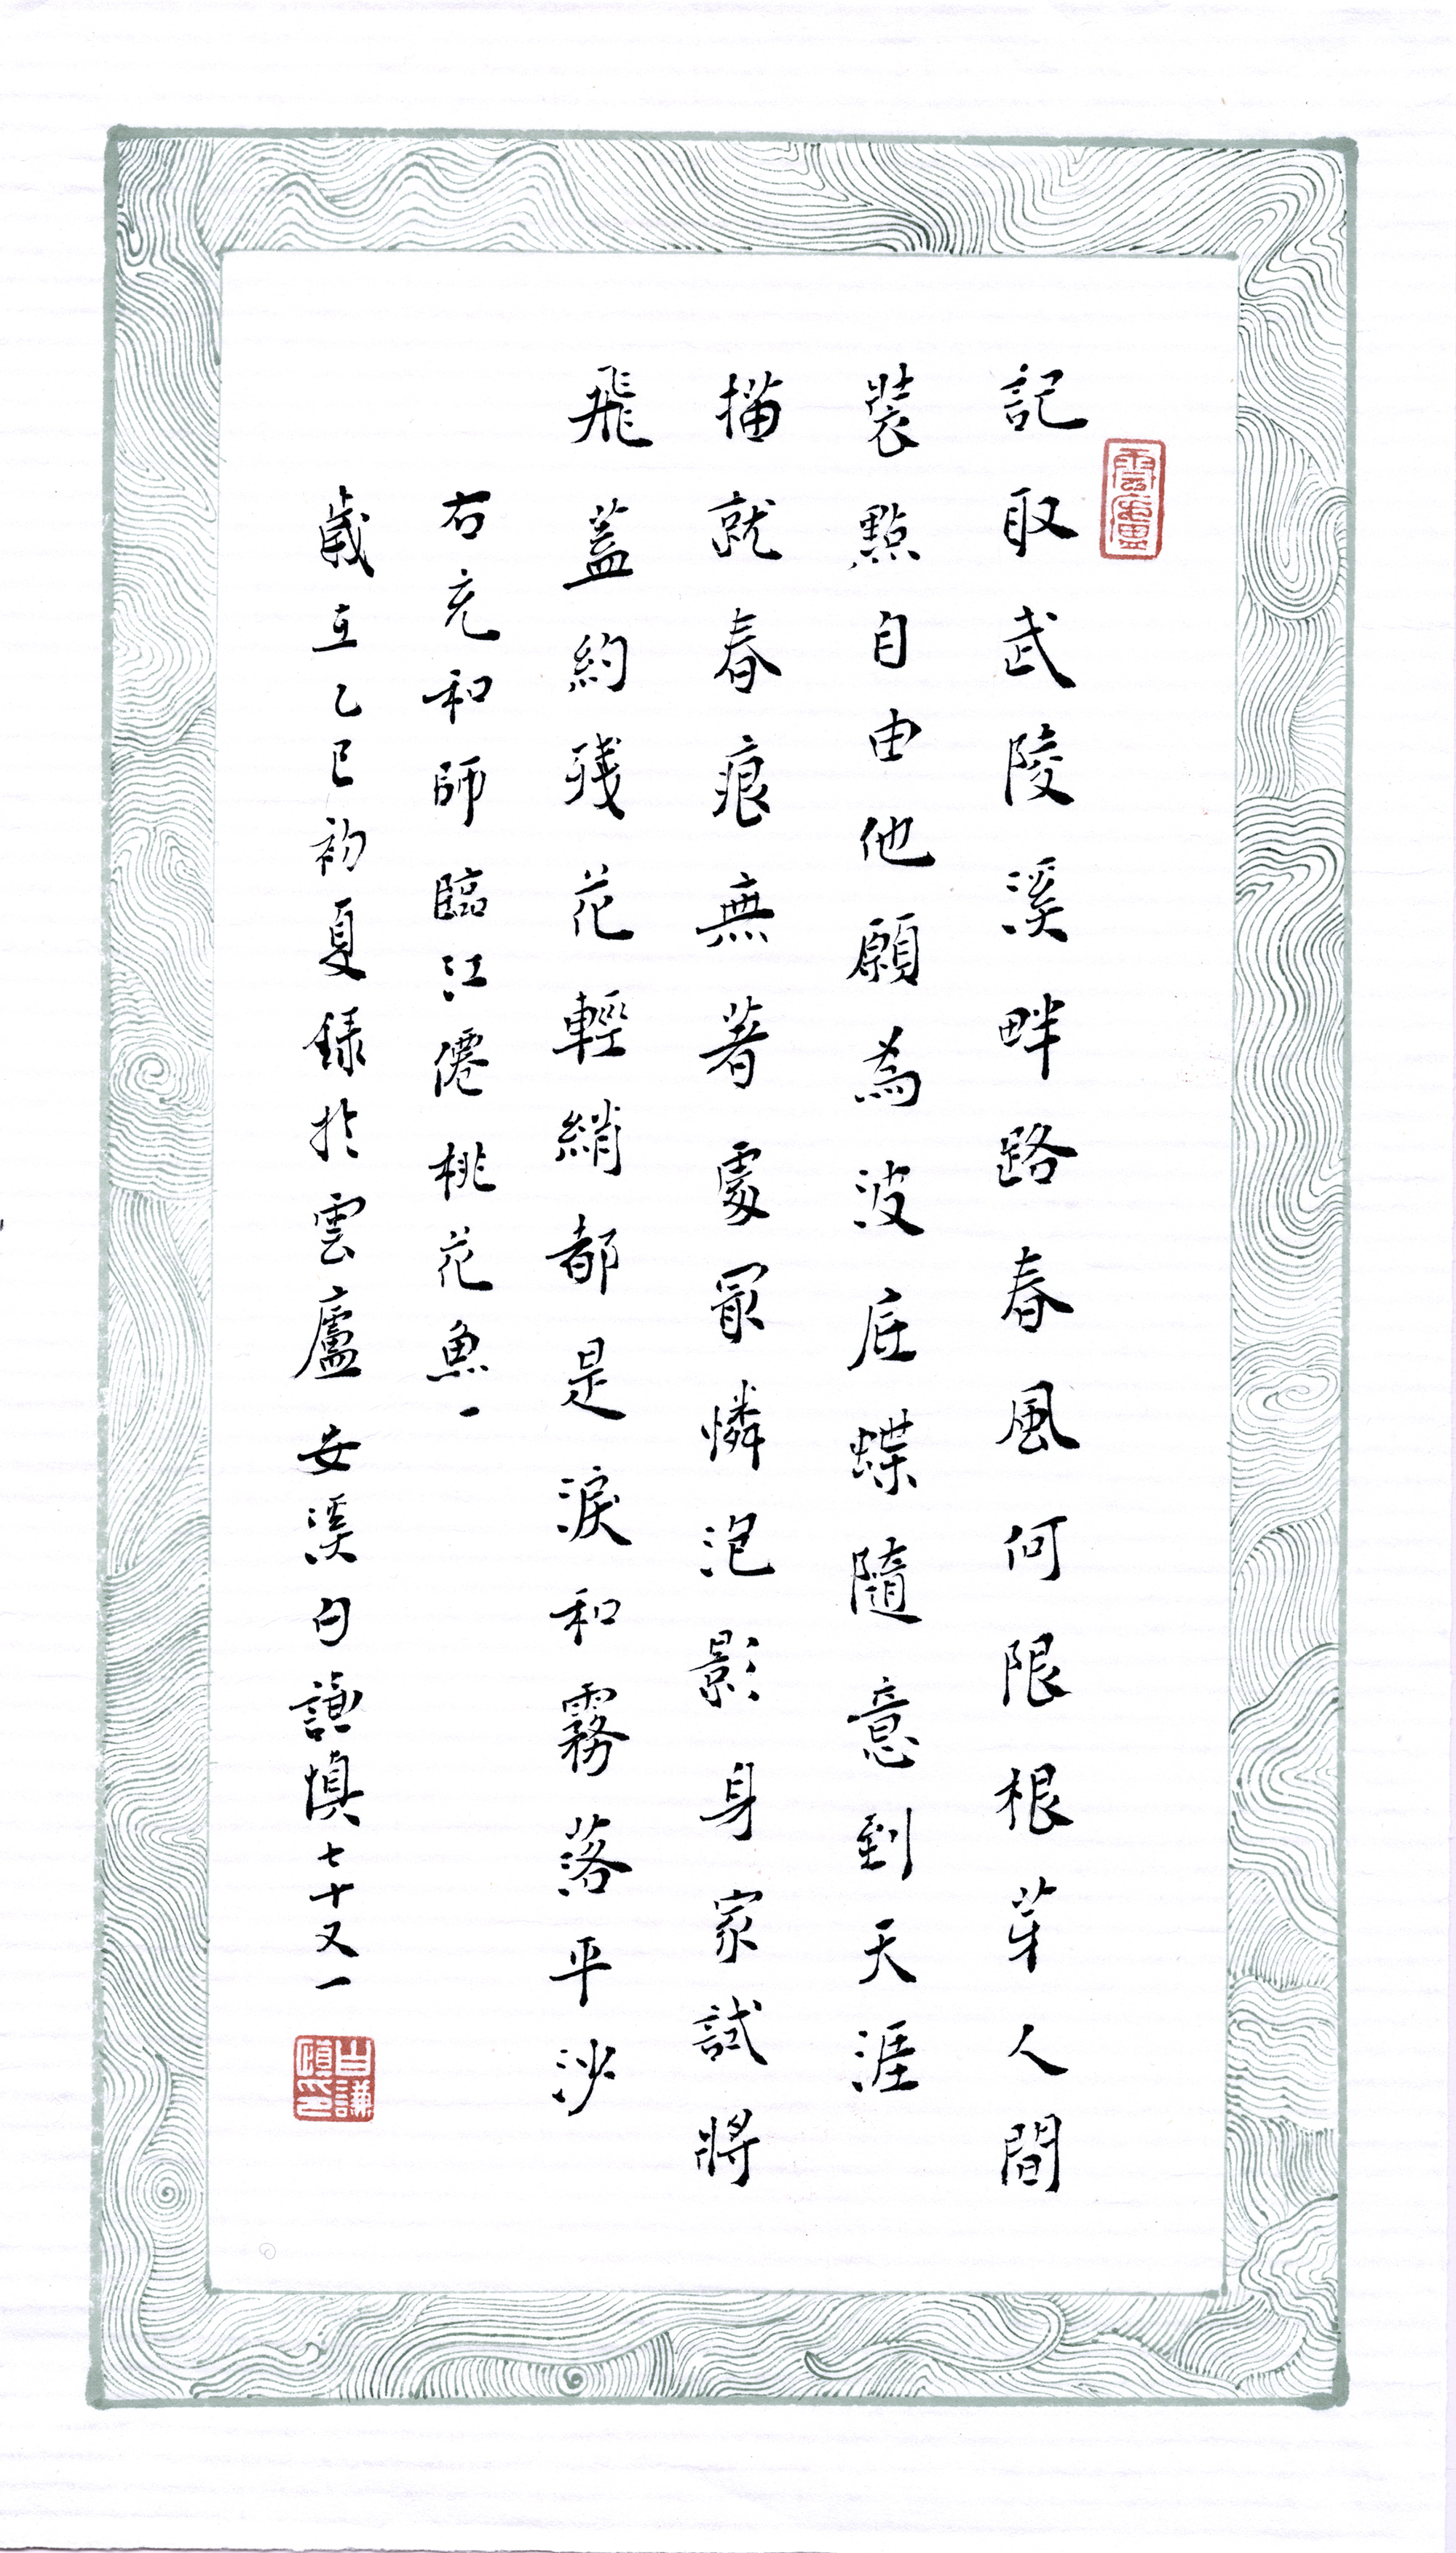 雲廬
記取武陵溪畔路春風何限根芽人間
裝點自由他願為波底蝶隨意到天涯
描就春痕無著處冣憐泡影身家試將
飛蓋約殘花輕綃都是淚和霧落平沙
右充和師臨江僊桃花魚一
歲在乙巳初夏錄於雲廬安溪白謙慎七十又一
白謙慎印